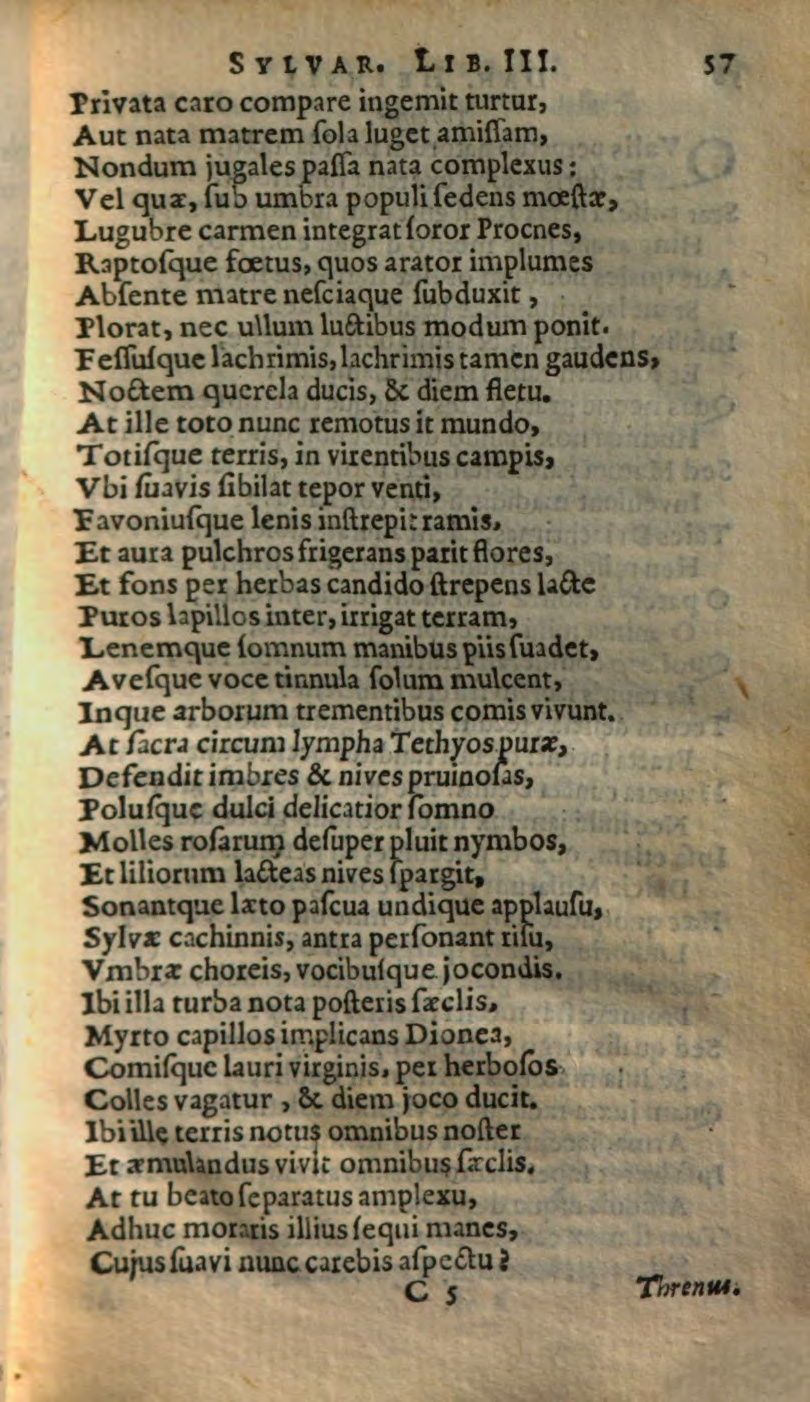 SYLVAR. LIB. III. 57
Privata caro compare ingemit turtur,
Aut nata matrem ſola luget amiſſam,
Nondum jugales paſſa nata complexus:
Vel quæ, ſub umbra populi ſedens mœſtæ,
Lugubre carmen integrat ſoror Procnes,
Raptoſque fœtus, quos arator implumes
Abſente matre neſciaque ſubduxit,
Plorat, nec ullum luctibus modum ponit.
Feſſuſque lachrimis, lachrimis tamen gaudens,
Noctem querela ducis, & diem fletu.
At ille toto nunc remotus it mundo,
Totiſque terris, in virentibus campis,
Vbi ſuavis ſibilat tepor venti,
Favoniuſque lenis inſtrepit ramis.
Et aura pulchros frigerans parit flores,
Et fons per herbas candido ſtrepens lacte
Puros lapillos inter, irrigat terram,
Lenemque ſomnum manibus piis ſuadet,
Aveſque voce tinnula ſolum mulcent,
Inque arborum trementibus comis vivunt.
At ſacra circum lympha Tethyos puræ,
Defendit imbres & nives pruinoſas,
Poluſque dulci delicatior ſomno
Molles roſarum deſuper pluit nymbos,
Et liliorum lacteas nives ſpargit,
Sonantque læto paſcua undique applauſu,
Sylvæ cachinnis, antra perſonant riſu,
Vmbræ choreis, vocibuſque jocondis.
Ibi illa turba nota poſteris ſæclis,
Myrto capillos implicans Dionea,
Comiſque lauri virginis, per herboſos
Colles vagatur, & diem joco ducit.
Ibi ille terris notus omnibus noſter
Et æmulandus vivit omnibus ſæclis.
At tu beato ſeparatus amplexu,
Adhuc moraris illius ſequi manes,
Cujus ſuavi nunc carebis aſpectu?
C 5 Threnus.